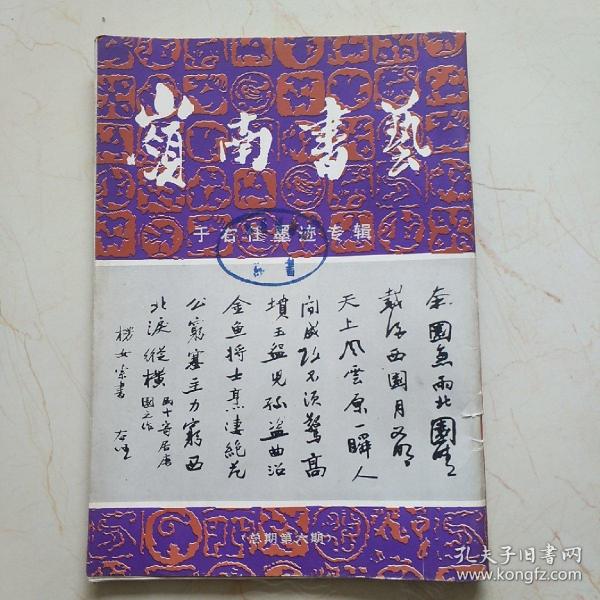 嶺南書藝
于右任墨迹专辑
南園無雨北園生
戴得西園月又明
天上風雲原一瞬人
間成敗不須驚高
墳玉盌兒孫盜曲沼
金魚將士烹凄絶老
公窮塞主力窮西
北淚縱橫
園之作
楞女索書
右任
(总期第六期)
孔夫子旧书网
www.kongfz.com